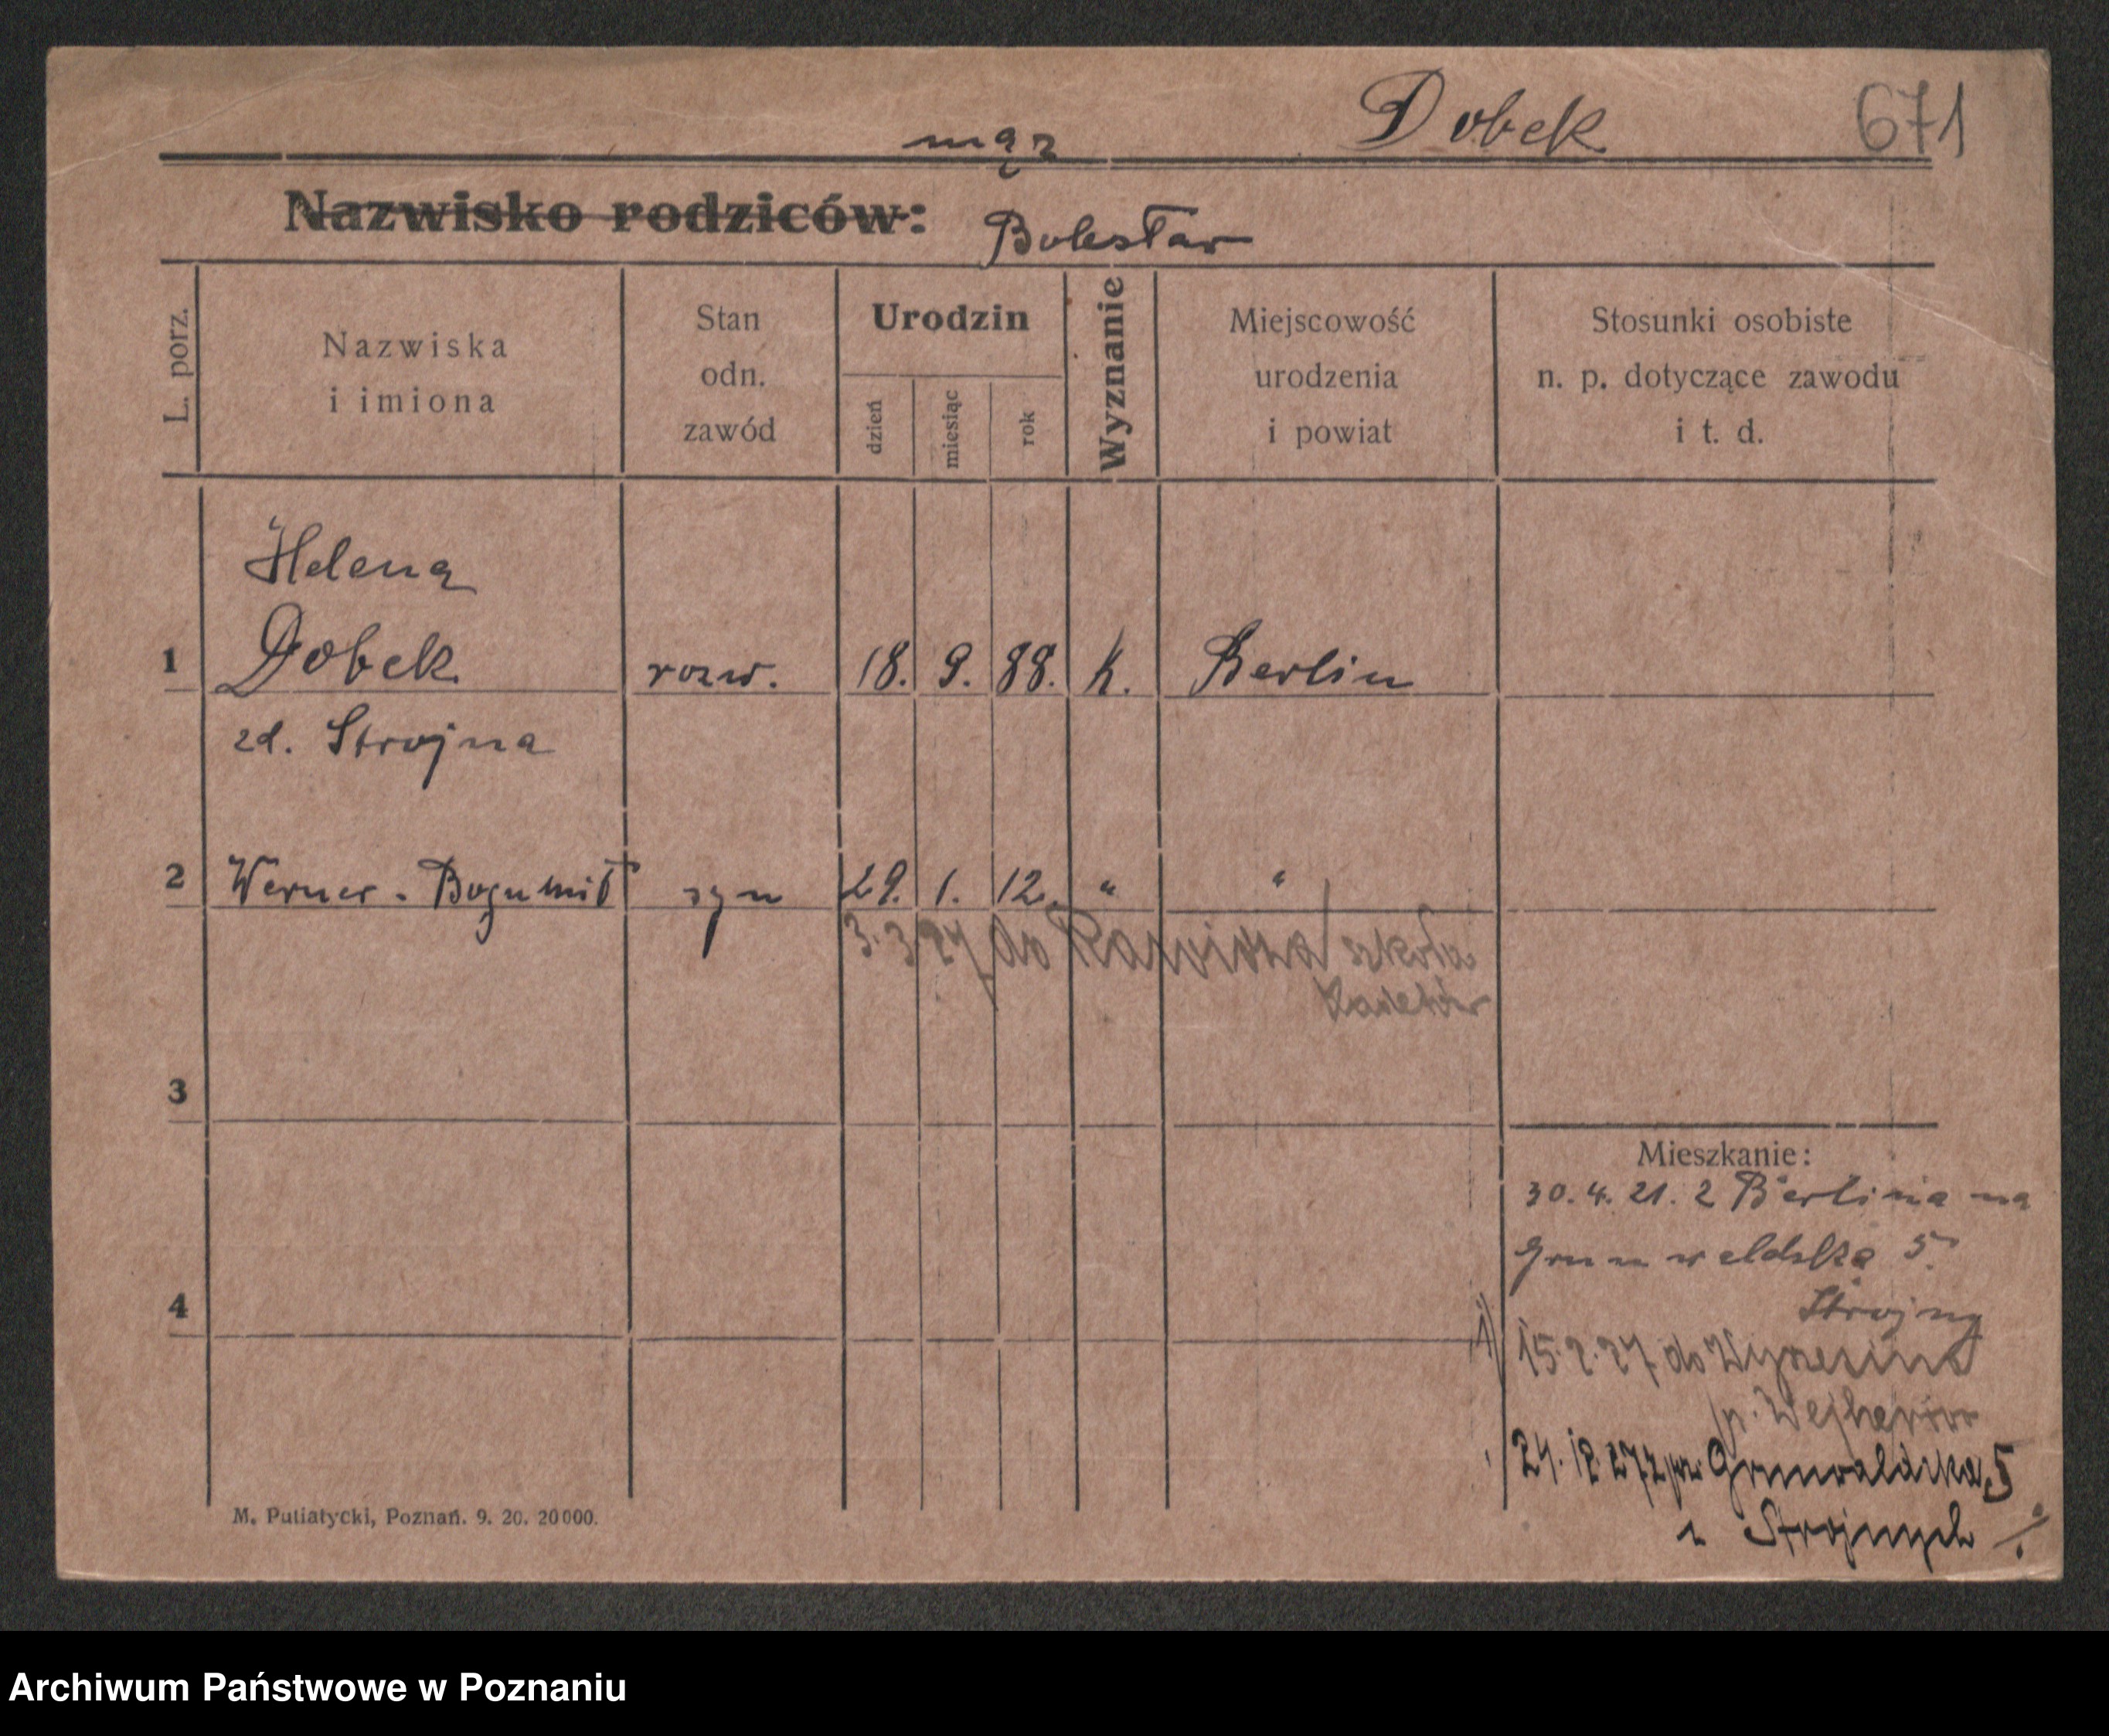 Dobek 671
mąż
Nazwisko rodziców: Bolesław
L. porz.
Nazwiska i imiona
Stan odn. zawód
Urodzin
dzień
miesiąc
rok
Wyznanie
Miejscowość urodzenia i powiat
Stosunki osobiste n. p. dotyczące zawodu i t. d.
Helena
1 Dobek rozw. 18. 9. 88. k. Berlin
zd. Strojna
2 Werner - Bogumił syn 29. 1. 12. " "
3. 3 27 do Rawicza / szkoła
Kadetów
3
Mieszkanie:
30. 4. 21. z Berlina na
Grunwaldzka 5.
4
Strojny
15. 2. 27 do
p. Wejherów
24. 12 27 z Grunwaldzka 5
z Strojnych ./.
M. Putiatycki, Poznań. 9. 20. 20000.
Archiwum Państwowe w Poznaniu